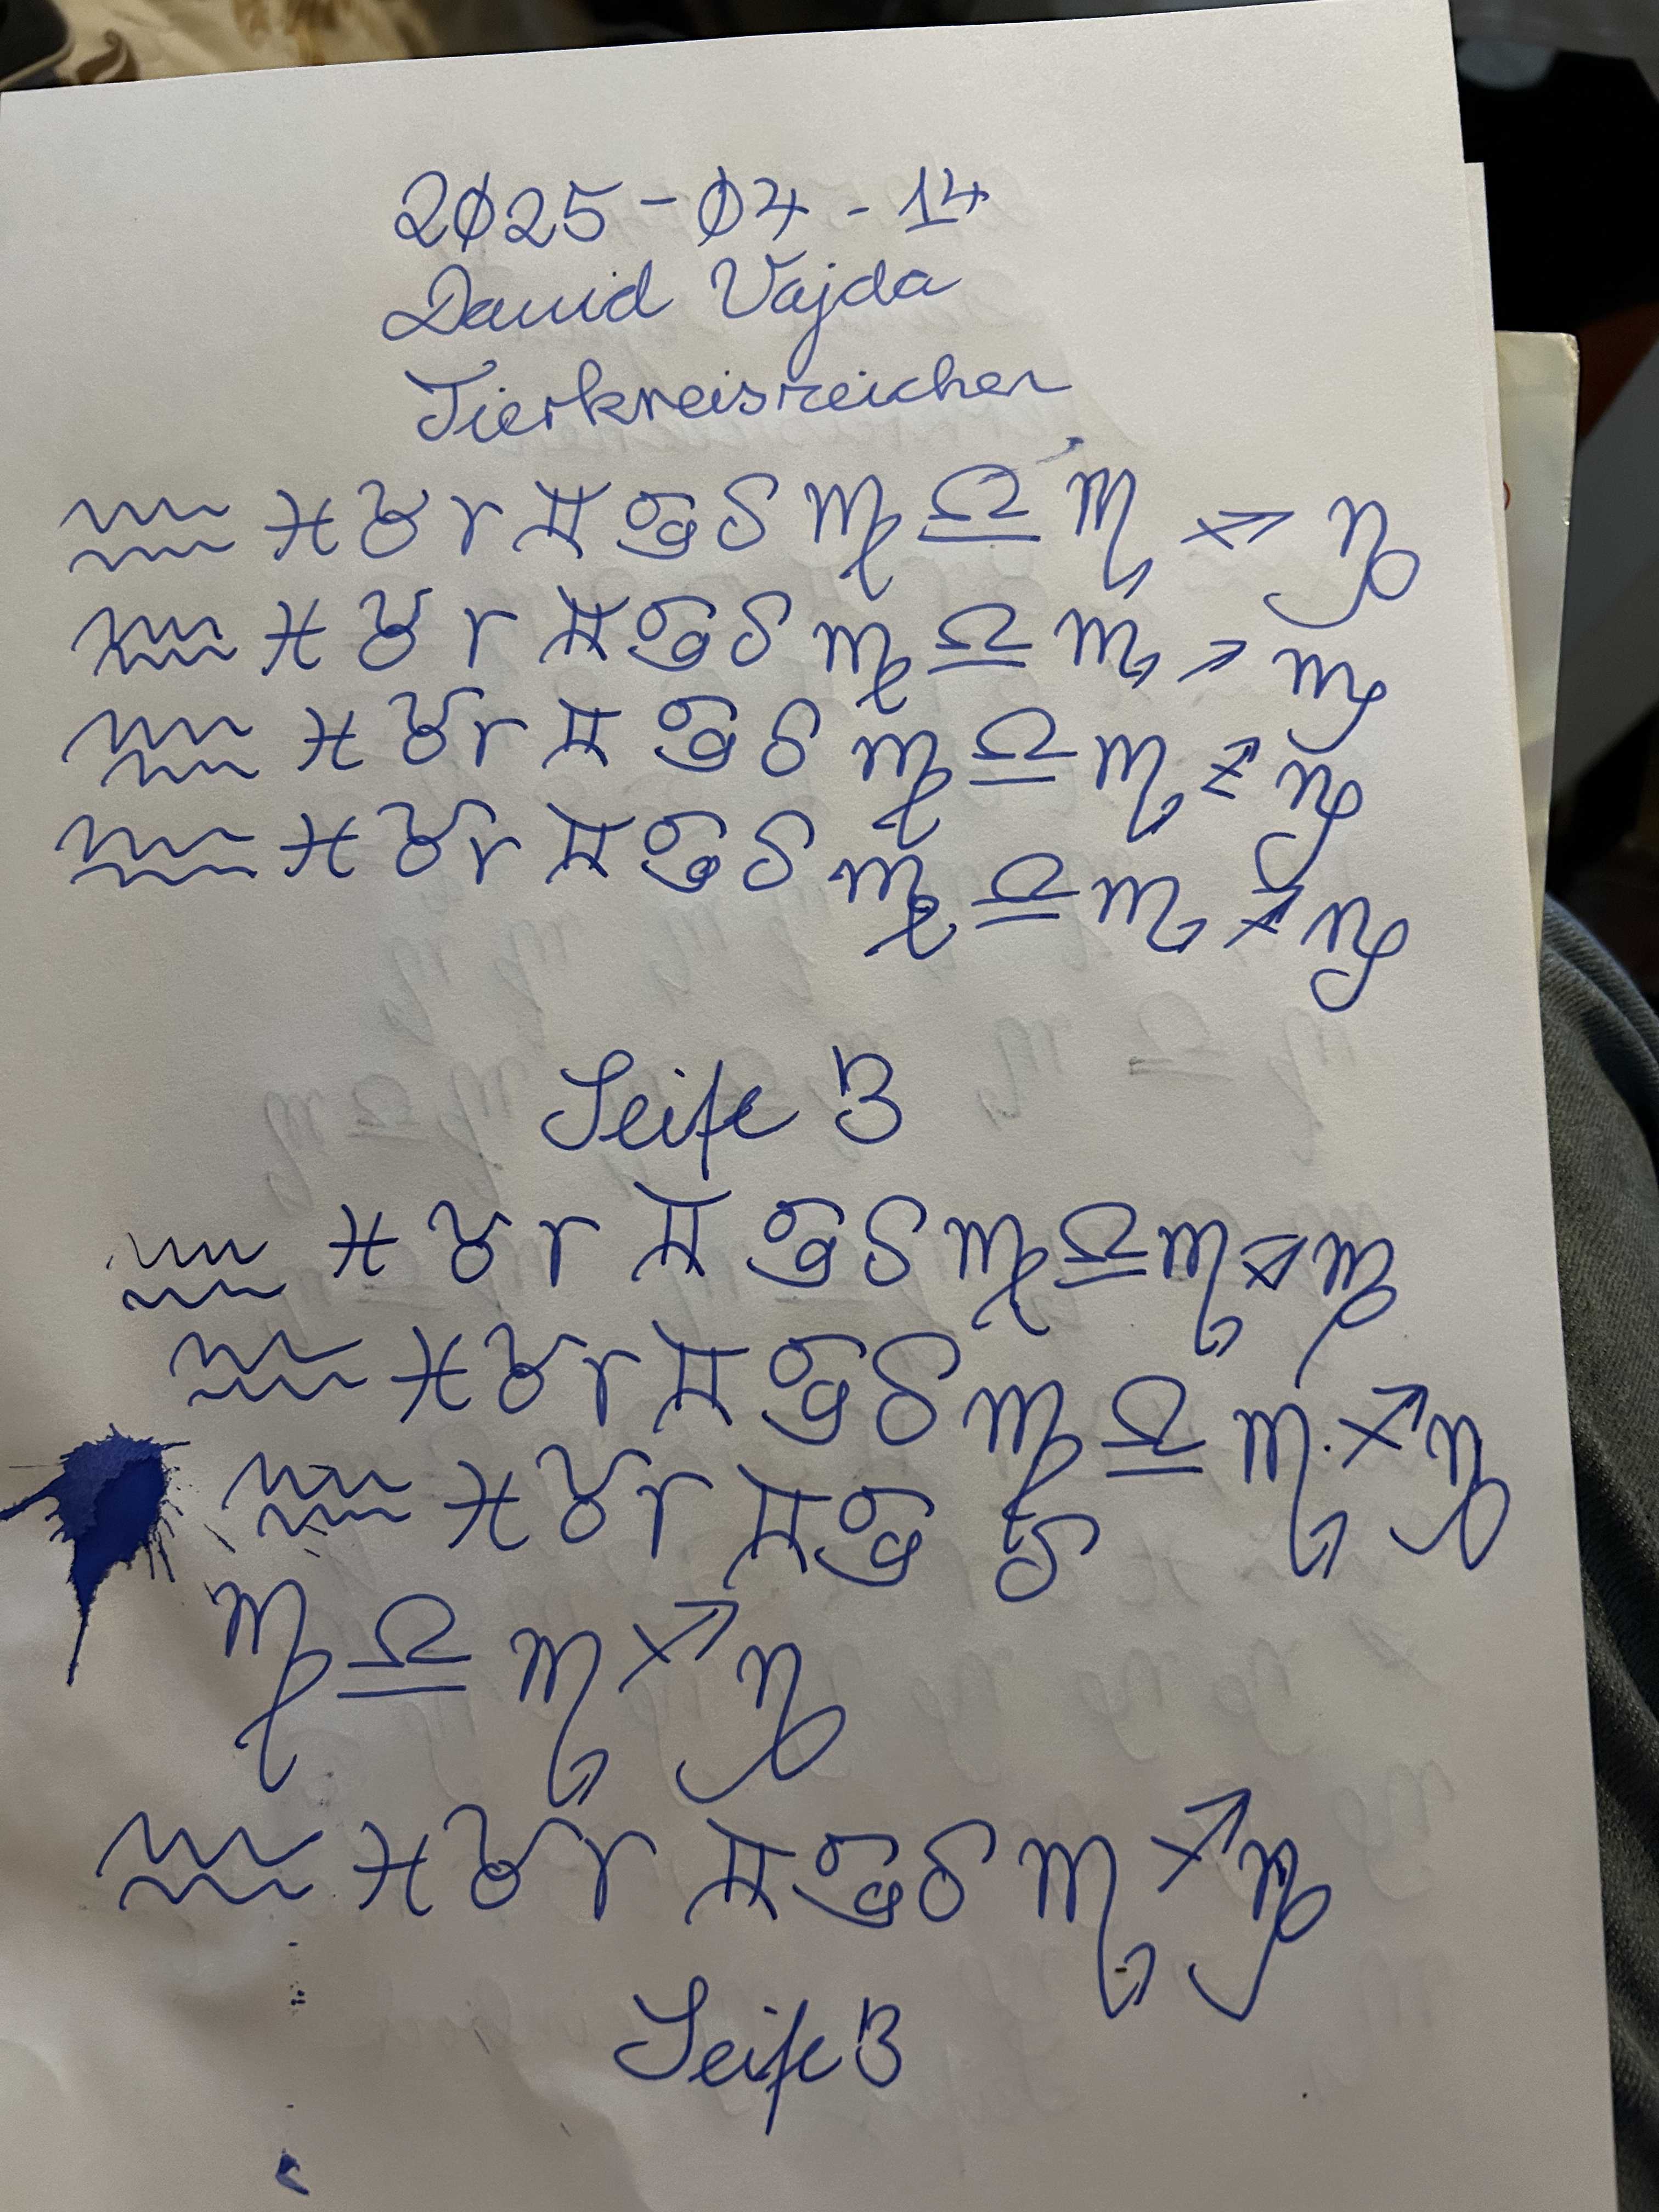 2025-04-14
David Vajda
Tierkreiszeichen
♒ ♓ ♉ ♈ ♊ ♋ ♌ ♍ ♎ ♏ ♐ ♑
♒ ♓ ♉ ♈ ♊ ♋ ♌ ♍ ♎ ♏ ♐ ♑
♒ ♓ ♉ ♈ ♊ ♋ ♌ ♍ ♎ ♏ ♐ ♑
♒ ♓ ♉ ♈ ♊ ♋ ♌ ♍ ♎ ♏ ♐ ♑
Seife 3
♒ ♓ ♉ ♈ ♊ ♋ ♌ ♍ ♎ ♏ ♐ ♑
♒ ♓ ♉ ♈ ♊ ♋ ♌ ♍ ♎ ♏ ♐ ♑
♒ ♓ ♉ ♈ ♊ ♋ ♌
♍ ♎ ♏ ♐ ♑
♒ ♓ ♉ ♈ ♊ ♋ ♌ ♏ ♐ ♑
Seife 3